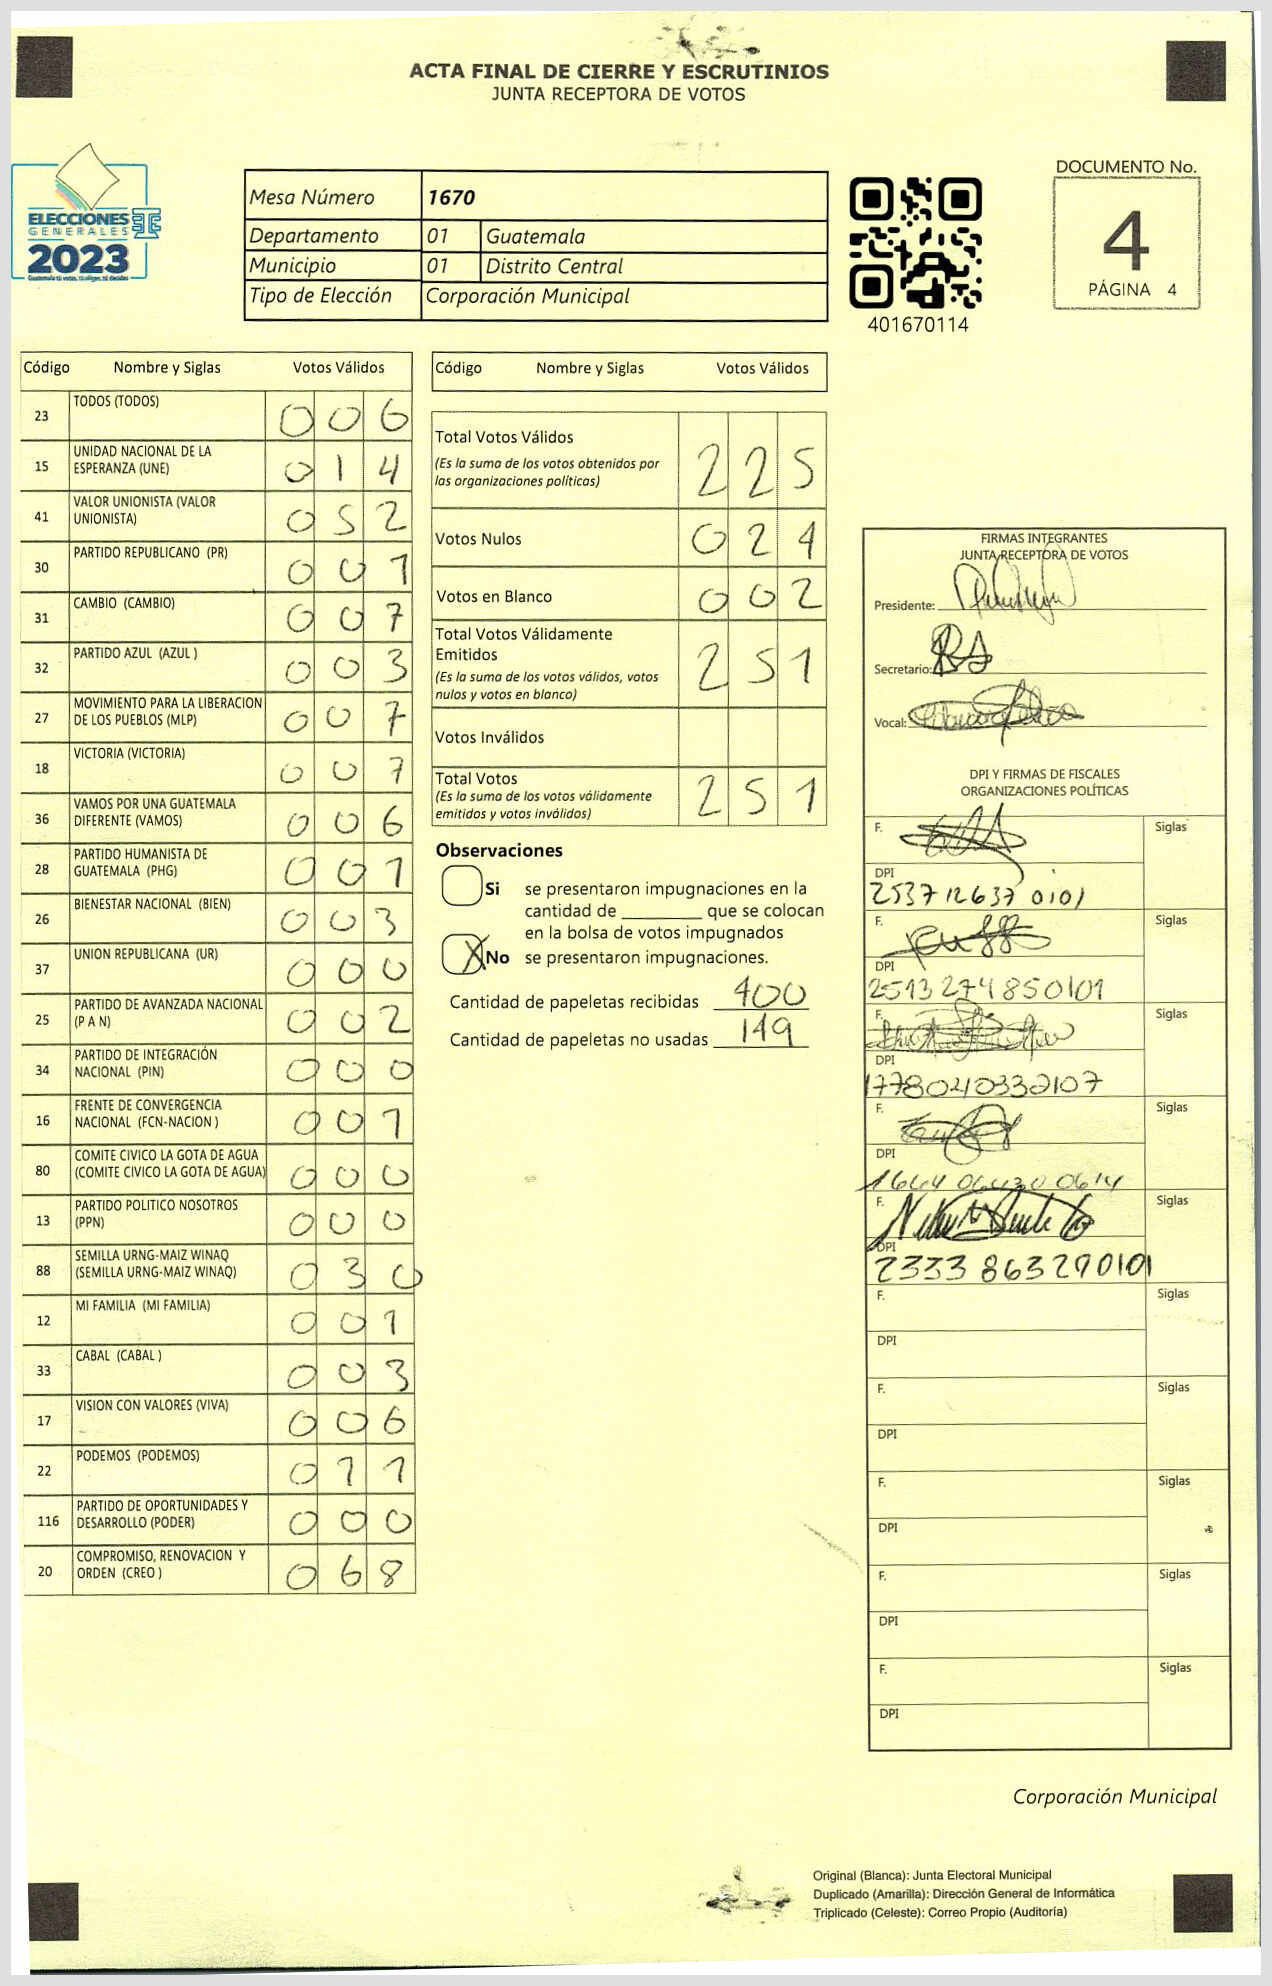 ACTA FINAL DE CIERRE Y ESCRUTINIOS
JUNTA RECEPTORA DE VOTOS
ELECCIONES
GENERALES
2023
Guatemala tú votas, tú eliges, tú decides
Mesa Número 1670
Departamento 01 Guatemala
Municipio 01 Distrito Central
Tipo de Elección Corporación Municipal
401670114
DOCUMENTO No.
4
PÁGINA 4
Código Nombre y Siglas Votos Válidos
23 TODOS (TODOS) 006
15 UNIDAD NACIONAL DE LA
ESPERANZA (UNE) 014
41 VALOR UNIONISTA (VALOR
UNIONISTA) 052
30 PARTIDO REPUBLICANO (PR) 001
31 CAMBIO (CAMBIO) 007
32 PARTIDO AZUL (AZUL ) 003
27 MOVIMIENTO PARA LA LIBERACION
DE LOS PUEBLOS (MLP) 007
18 VICTORIA (VICTORIA) 007
36 VAMOS POR UNA GUATEMALA
DIFERENTE (VAMOS) 006
28 PARTIDO HUMANISTA DE
GUATEMALA (PHG) 001
26 BIENESTAR NACIONAL (BIEN) 003
37 UNION REPUBLICANA (UR) 000
25 PARTIDO DE AVANZADA NACIONAL
(P A N) 002
34 PARTIDO DE INTEGRACIÓN
NACIONAL (PIN) 000
16 FRENTE DE CONVERGENCIA
NACIONAL (FCN-NACION ) 001
80 COMITE CIVICO LA GOTA DE AGUA
(COMITE CIVICO LA GOTA DE AGUA) 000
13 PARTIDO POLITICO NOSOTROS
(PPN) 000
88 SEMILLA URNG-MAIZ WINAQ
(SEMILLA URNG-MAIZ WINAQ) 030
12 MI FAMILIA (MI FAMILIA) 001
33 CABAL (CABAL ) 003
17 VISION CON VALORES (VIVA) 006
22 PODEMOS (PODEMOS) 011
116 PARTIDO DE OPORTUNIDADES Y
DESARROLLO (PODER) 000
20 COMPROMISO, RENOVACION Y
ORDEN (CREO ) 068
Código Nombre y Siglas Votos Válidos
Total Votos Válidos 225
(Es la suma de los votos obtenidos por
las organizaciones políticas)
Votos Nulos 024
Votos en Blanco 002
Total Votos Válidamente
Emitidos 251
(Es la suma de los votos válidos, votos
nulos y votos en blanco)
Votos Inválidos
Total Votos 251
(Es la suma de los votos válidamente
emitidos y votos inválidos)
Observaciones
Si se presentaron impugnaciones en la
cantidad de ________ que se colocan
en la bolsa de votos impugnados
X No se presentaron impugnaciones.
Cantidad de papeletas recibidas 400
Cantidad de papeletas no usadas 149
FIRMAS INTEGRANTES
JUNTA RECEPTORA DE VOTOS
Presidente:
Secretario:
Vocal:
DPI Y FIRMAS DE FISCALES
ORGANIZACIONES POLÍTICAS
F. Siglas
DPI
2537126370101
F. Siglas
DPI
2513274850101
F. Siglas
DPI
1778040332107
F. Siglas
DPI
1644064300614
F. Siglas
DPI
2333863290101
F. Siglas
DPI
F. Siglas
DPI
F. Siglas
DPI
F. Siglas
DPI
F. Siglas
DPI
Corporación Municipal
Original (Blanca): Junta Electoral Municipal
Duplicado (Amarilla): Dirección General de Informática
Triplicado (Celeste): Correo Propio (Auditoría)